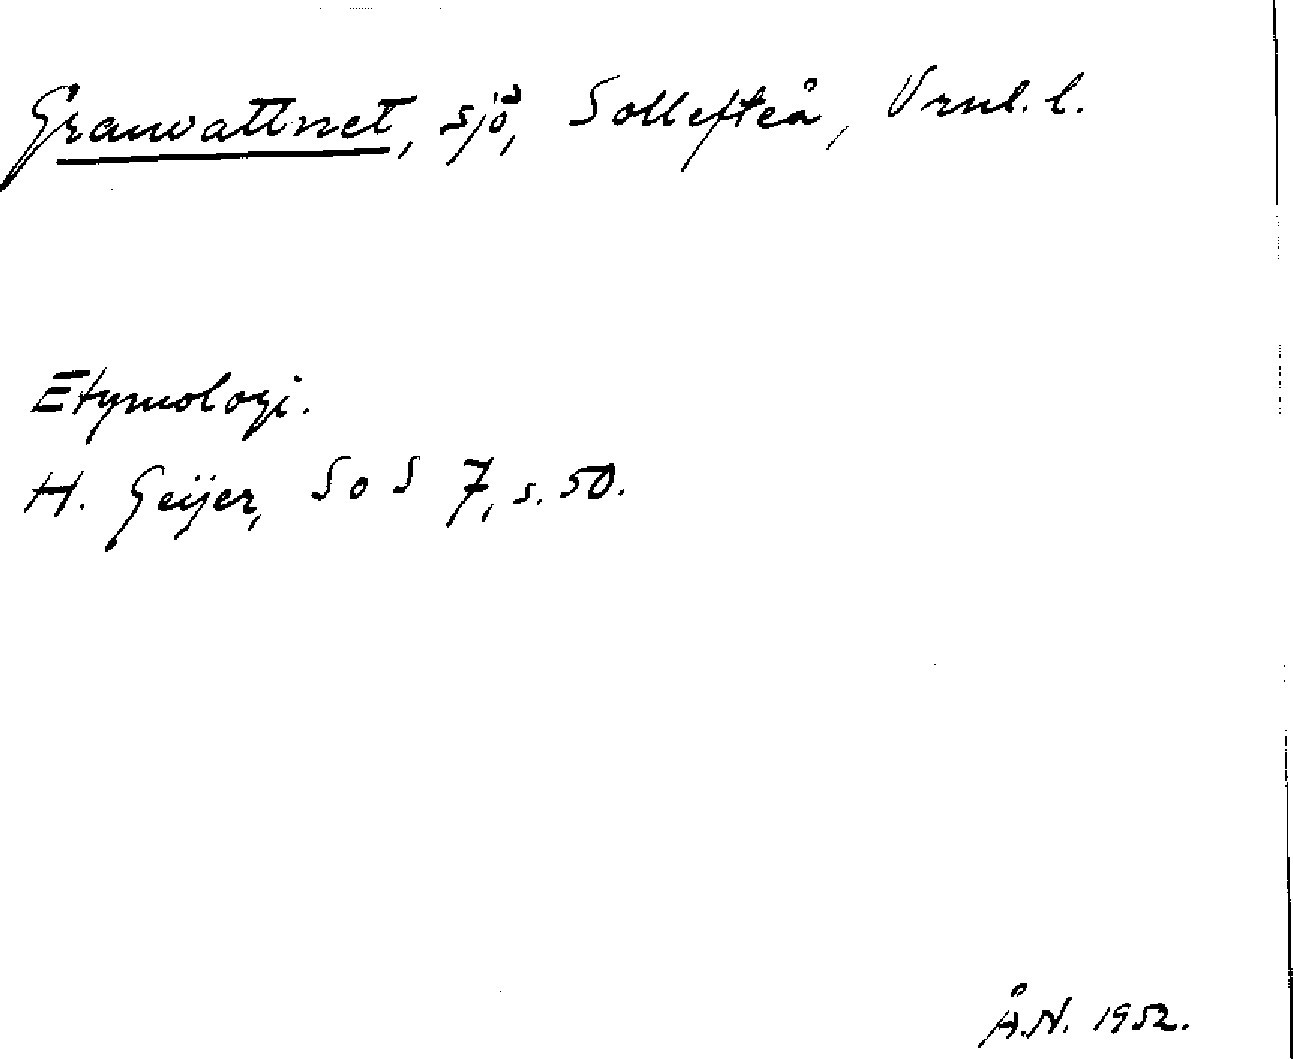 Granvattnet, sjö, Sollefteå, Vrnl. l.
Etymologi.
H. Geijer, SoS 7, s. 50.
Å.N. 1952.